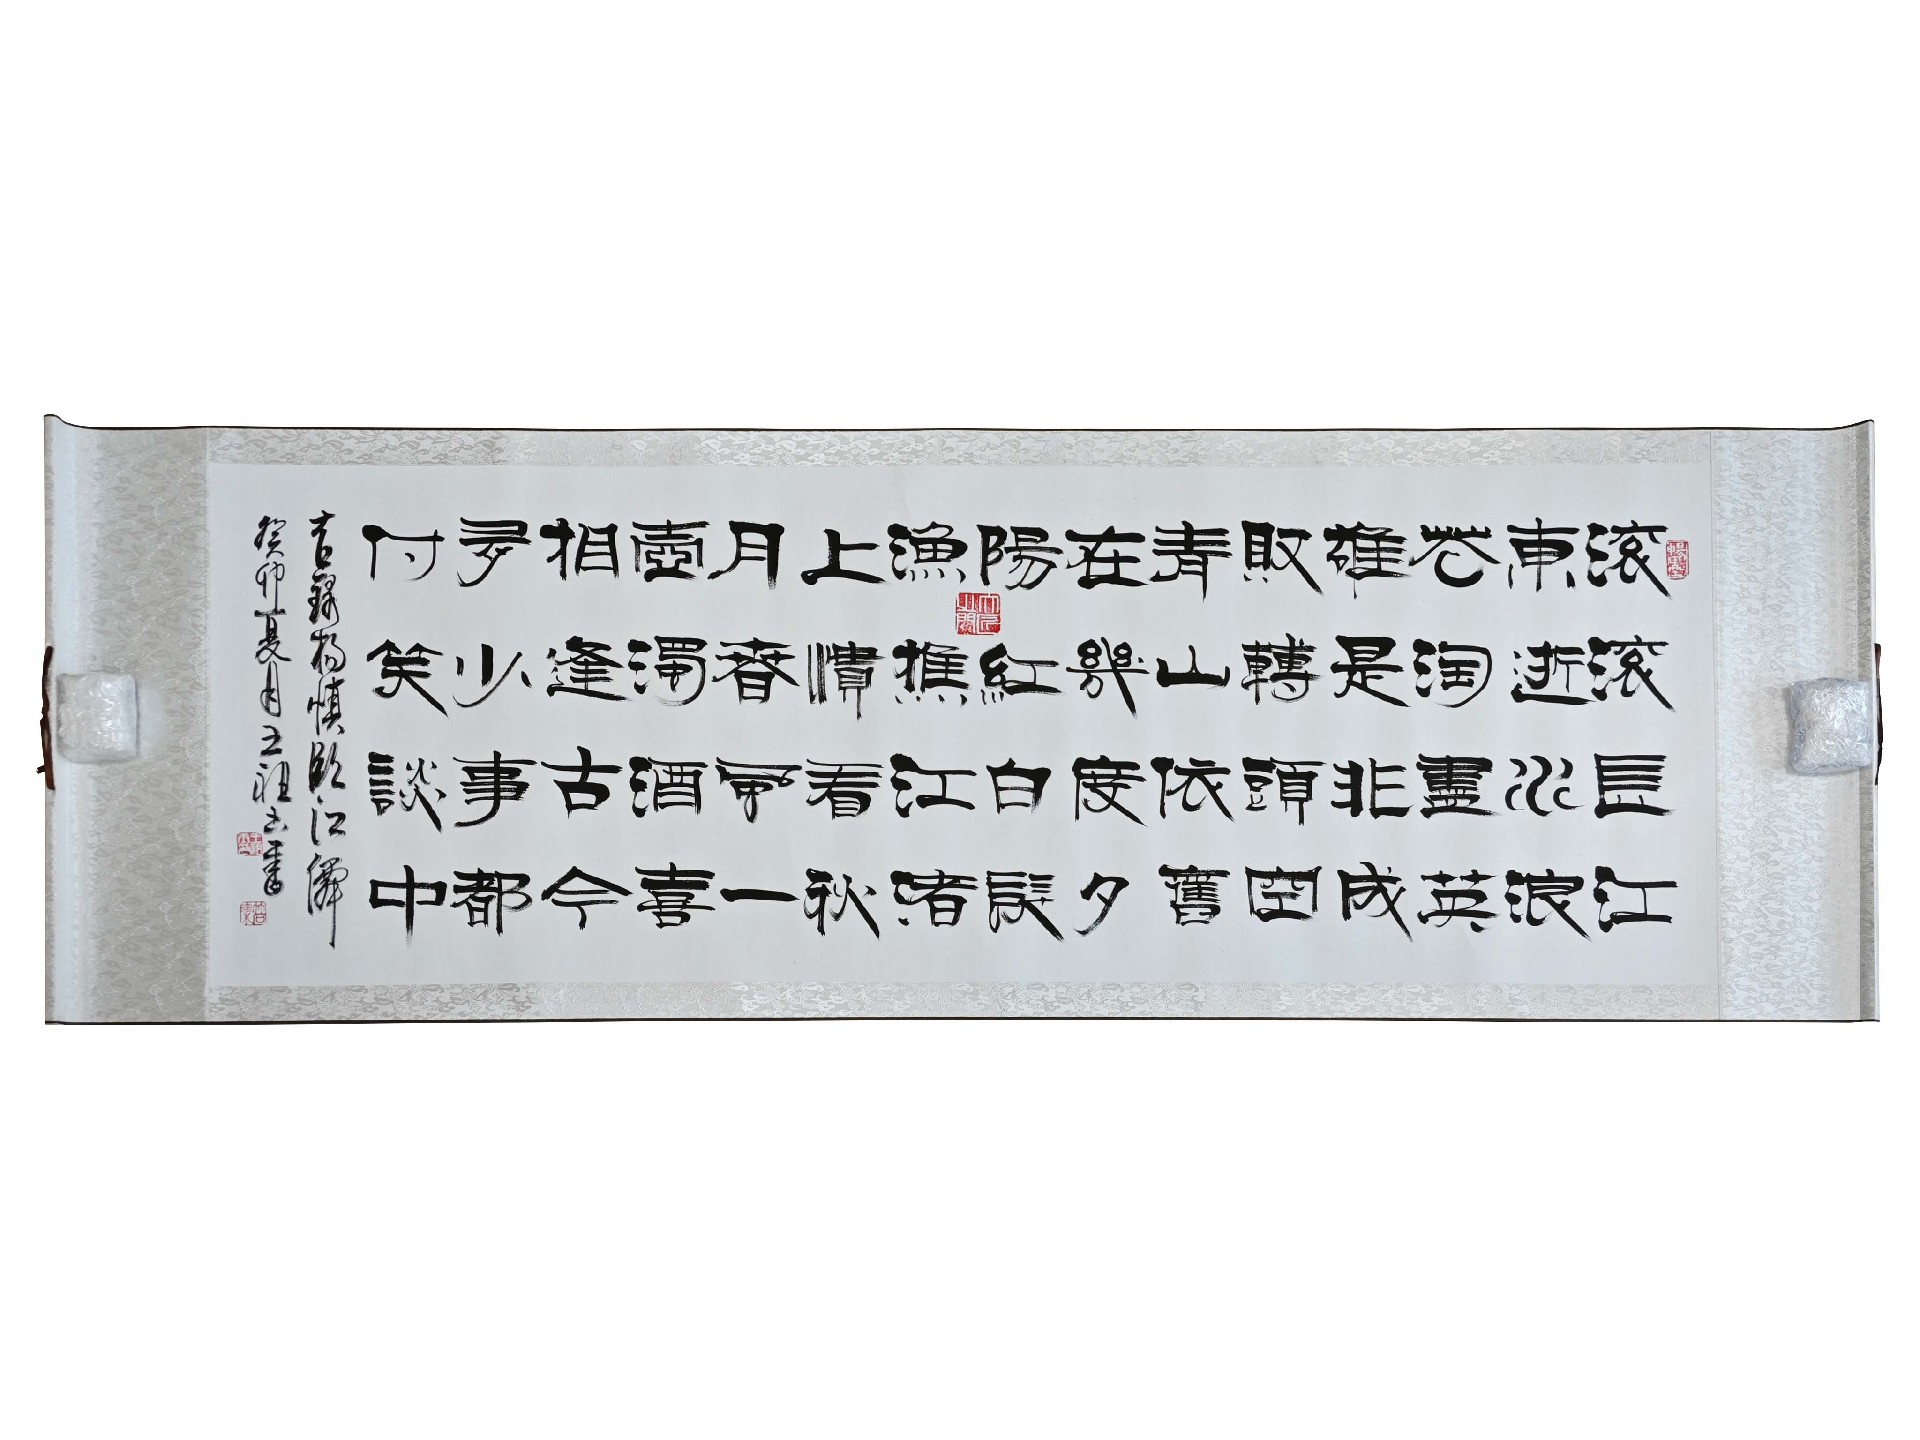 滚滚長江
東逝水浪
花淘盡英
雄是非成
敗轉頭空
青山依舊
在幾度夕
陽紅白髮
漁樵江渚
上慣看秋
月春風一
壺濁酒喜
相逢古今
多少事都
付笑談中
右錄楊慎臨江僊
癸卯夏月王祖書